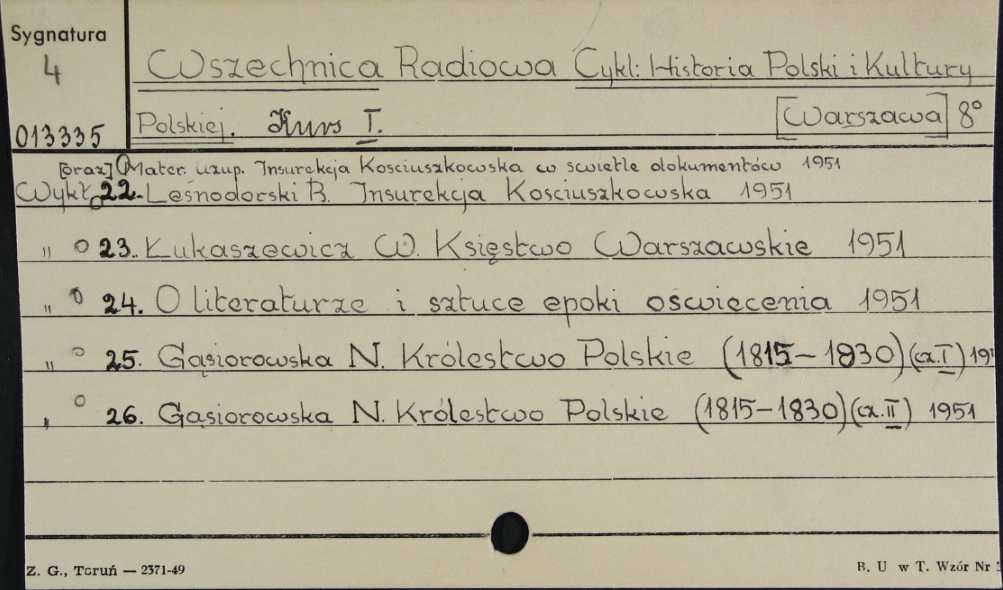 Sygnatura
4
013335
Wszechnica Radiowa Cykl: Historia Polski i Kultury
Polskiej. Kurs I. [Warszawa] 8°
[oraz] Mater. uzup. Insurekcja Kosciuszkowska w swietle dokumentów 1951
Wykł. 22. Leśnodorski B. Insurekcja Kosciuszkowska 1951
" 23. Łukaszewicz W. Księstwo Warszawskie 1951
" 24. O literaturze i sztuce epoki oświecenia 1951
" 25. Gąsiorowska N. Królestwo Polskie (1815-1830) (cz. I)
" 26. Gąsiorowska N. Królestwo Polskie (1815-1830) (cz. II) 1951
Z. G., Toruń — 2371-49
B. U w T. Wzór Nr